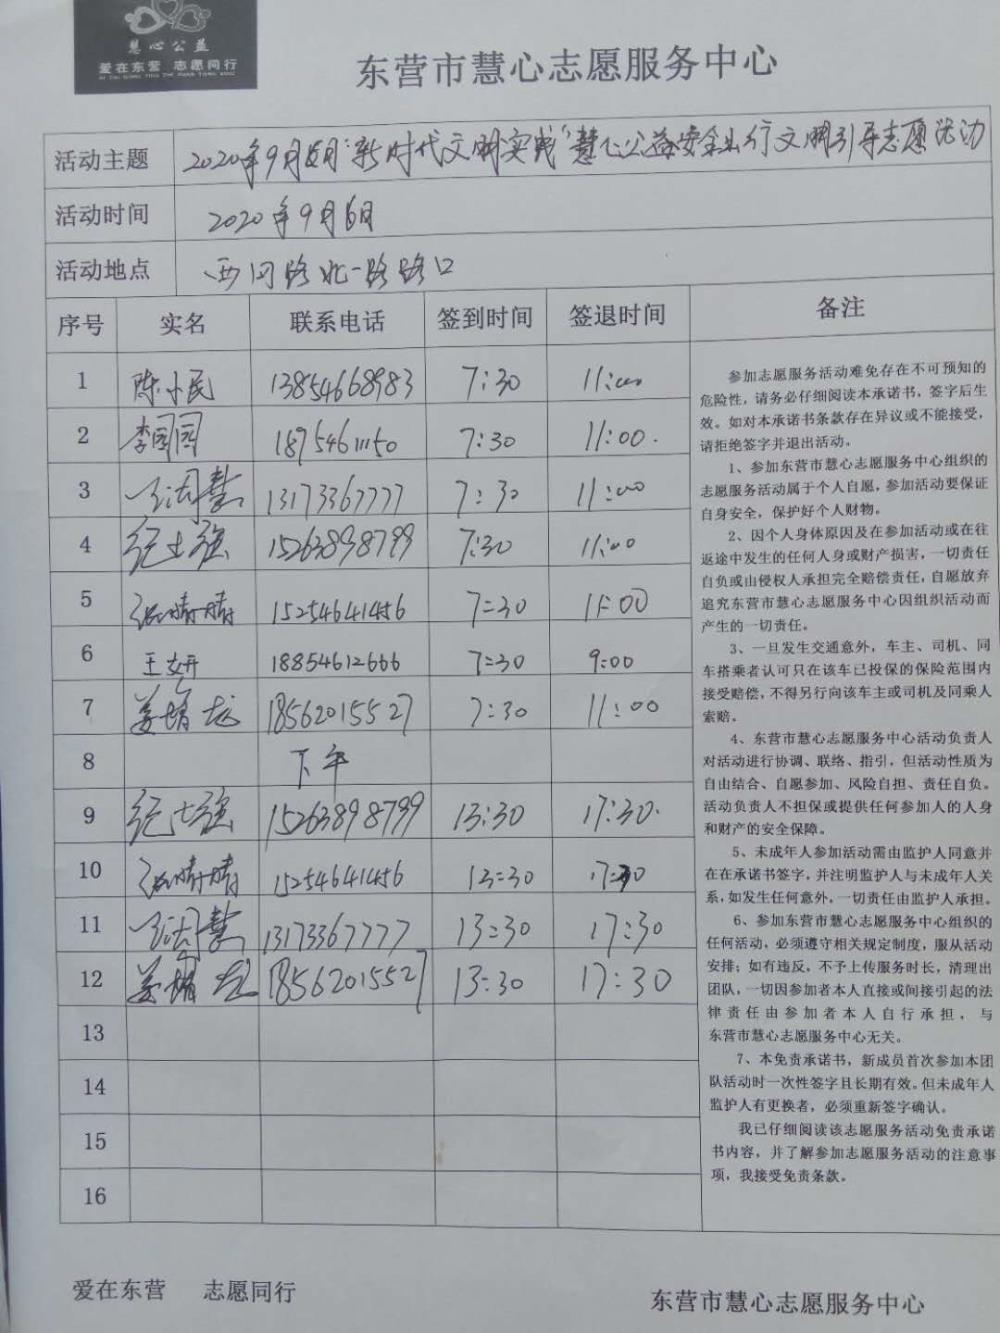 慧心公益
爱在东营 志愿同行
东营市慧心志愿服务中心
活动主题 2020年9月6日"新时代文明实践"慧心公益安全出行文明引导志愿活动
活动时间 2020年9月6日
活动地点 西四路北一路路口
序号 实名 联系电话 签到时间 签退时间 备注
1 陈小民 13854668983 7:30 11:00
2 李园园 18954611150 7:30 11:00.
3 慧 13173367777 7:30 11:00
4 纪士强 15263898799 7:30 11:00
5 张晴晴 15254641456 7:30 11:00
6 王妍 18854612666 7:30 9:00
7 姜婧龙 18562015527 7:30 11:00
8 下午
9 纪士强 15263898799 13:30 17:30.
10 张晴晴 15254641456 13:30 17:30
11 慧 13173367777 13:30 17:30
12 姜婧龙 18562015527 13:30 17:30
13
14
15
16
参加志愿服务活动难免存在不可预知的
危险性,请务必仔细阅读本承诺书,签字后生
效。如对本承诺书条款存在异议或不能接受,
请拒绝签字并退出活动。
1、参加东营市慧心志愿服务中心组织的
志愿服务活动属于个人自愿,参加活动要保证
自身安全,保护好个人财物。
2、因个人身体原因及在参加活动或在往
返途中发生的任何人身或财产损害,一切责任
自负或由侵权人承担完全赔偿责任,自愿放弃
追究东营市慧心志愿服务中心因组织活动而
产生的一切责任。
3、一旦发生交通意外,车主、司机、同
车搭乘者认可只在该车已投保的保险范围内
接受赔偿,不得另行向该车主或司机及同乘人
索赔。
4、东营市慧心志愿服务中心活动负责人
对活动进行协调、联络、指引,但活动性质为
自由结合、自愿参加、风险自担、责任自负。
活动负责人不担保或提供任何参加人的人身
和财产的安全保障。
5、未成年人参加活动需由监护人同意并
在在承诺书签字,并注明监护人与未成年人关
系,如发生任何意外,一切责任由监护人承担。
6、参加东营市慧心志愿服务中心组织的
任何活动,必须遵守相关规定制度,服从活动
安排;如有违反,不予上传服务时长,清理出
团队,一切因参加者本人直接或间接引起的法
律责任由参加者本人自行承担,与
东营市慧心志愿服务中心无关。
7、本免责承诺书,新成员首次参加本团
队活动时一次性签字且长期有效。但未成年人
监护人有更换者,必须重新签字确认。
我已仔细阅读该志愿服务活动免责承诺
书内容,并了解参加志愿服务活动的注意事
项,我接受免责条款。
爱在东营 志愿同行
东营市慧心志愿服务中心